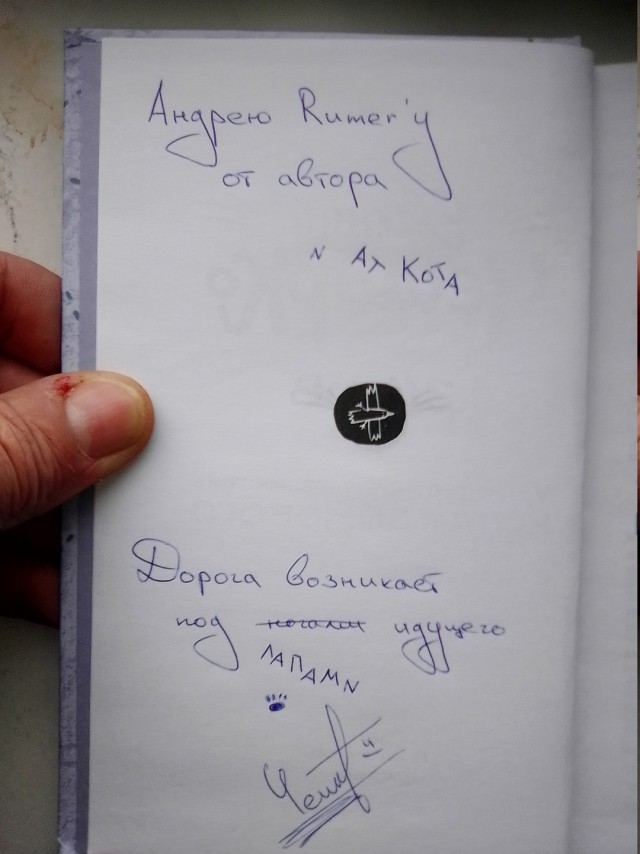 Андрею Rumer'у
от автора
N Ах КотА
Дорога возникает
под ногами идущего
ЛАПАМN